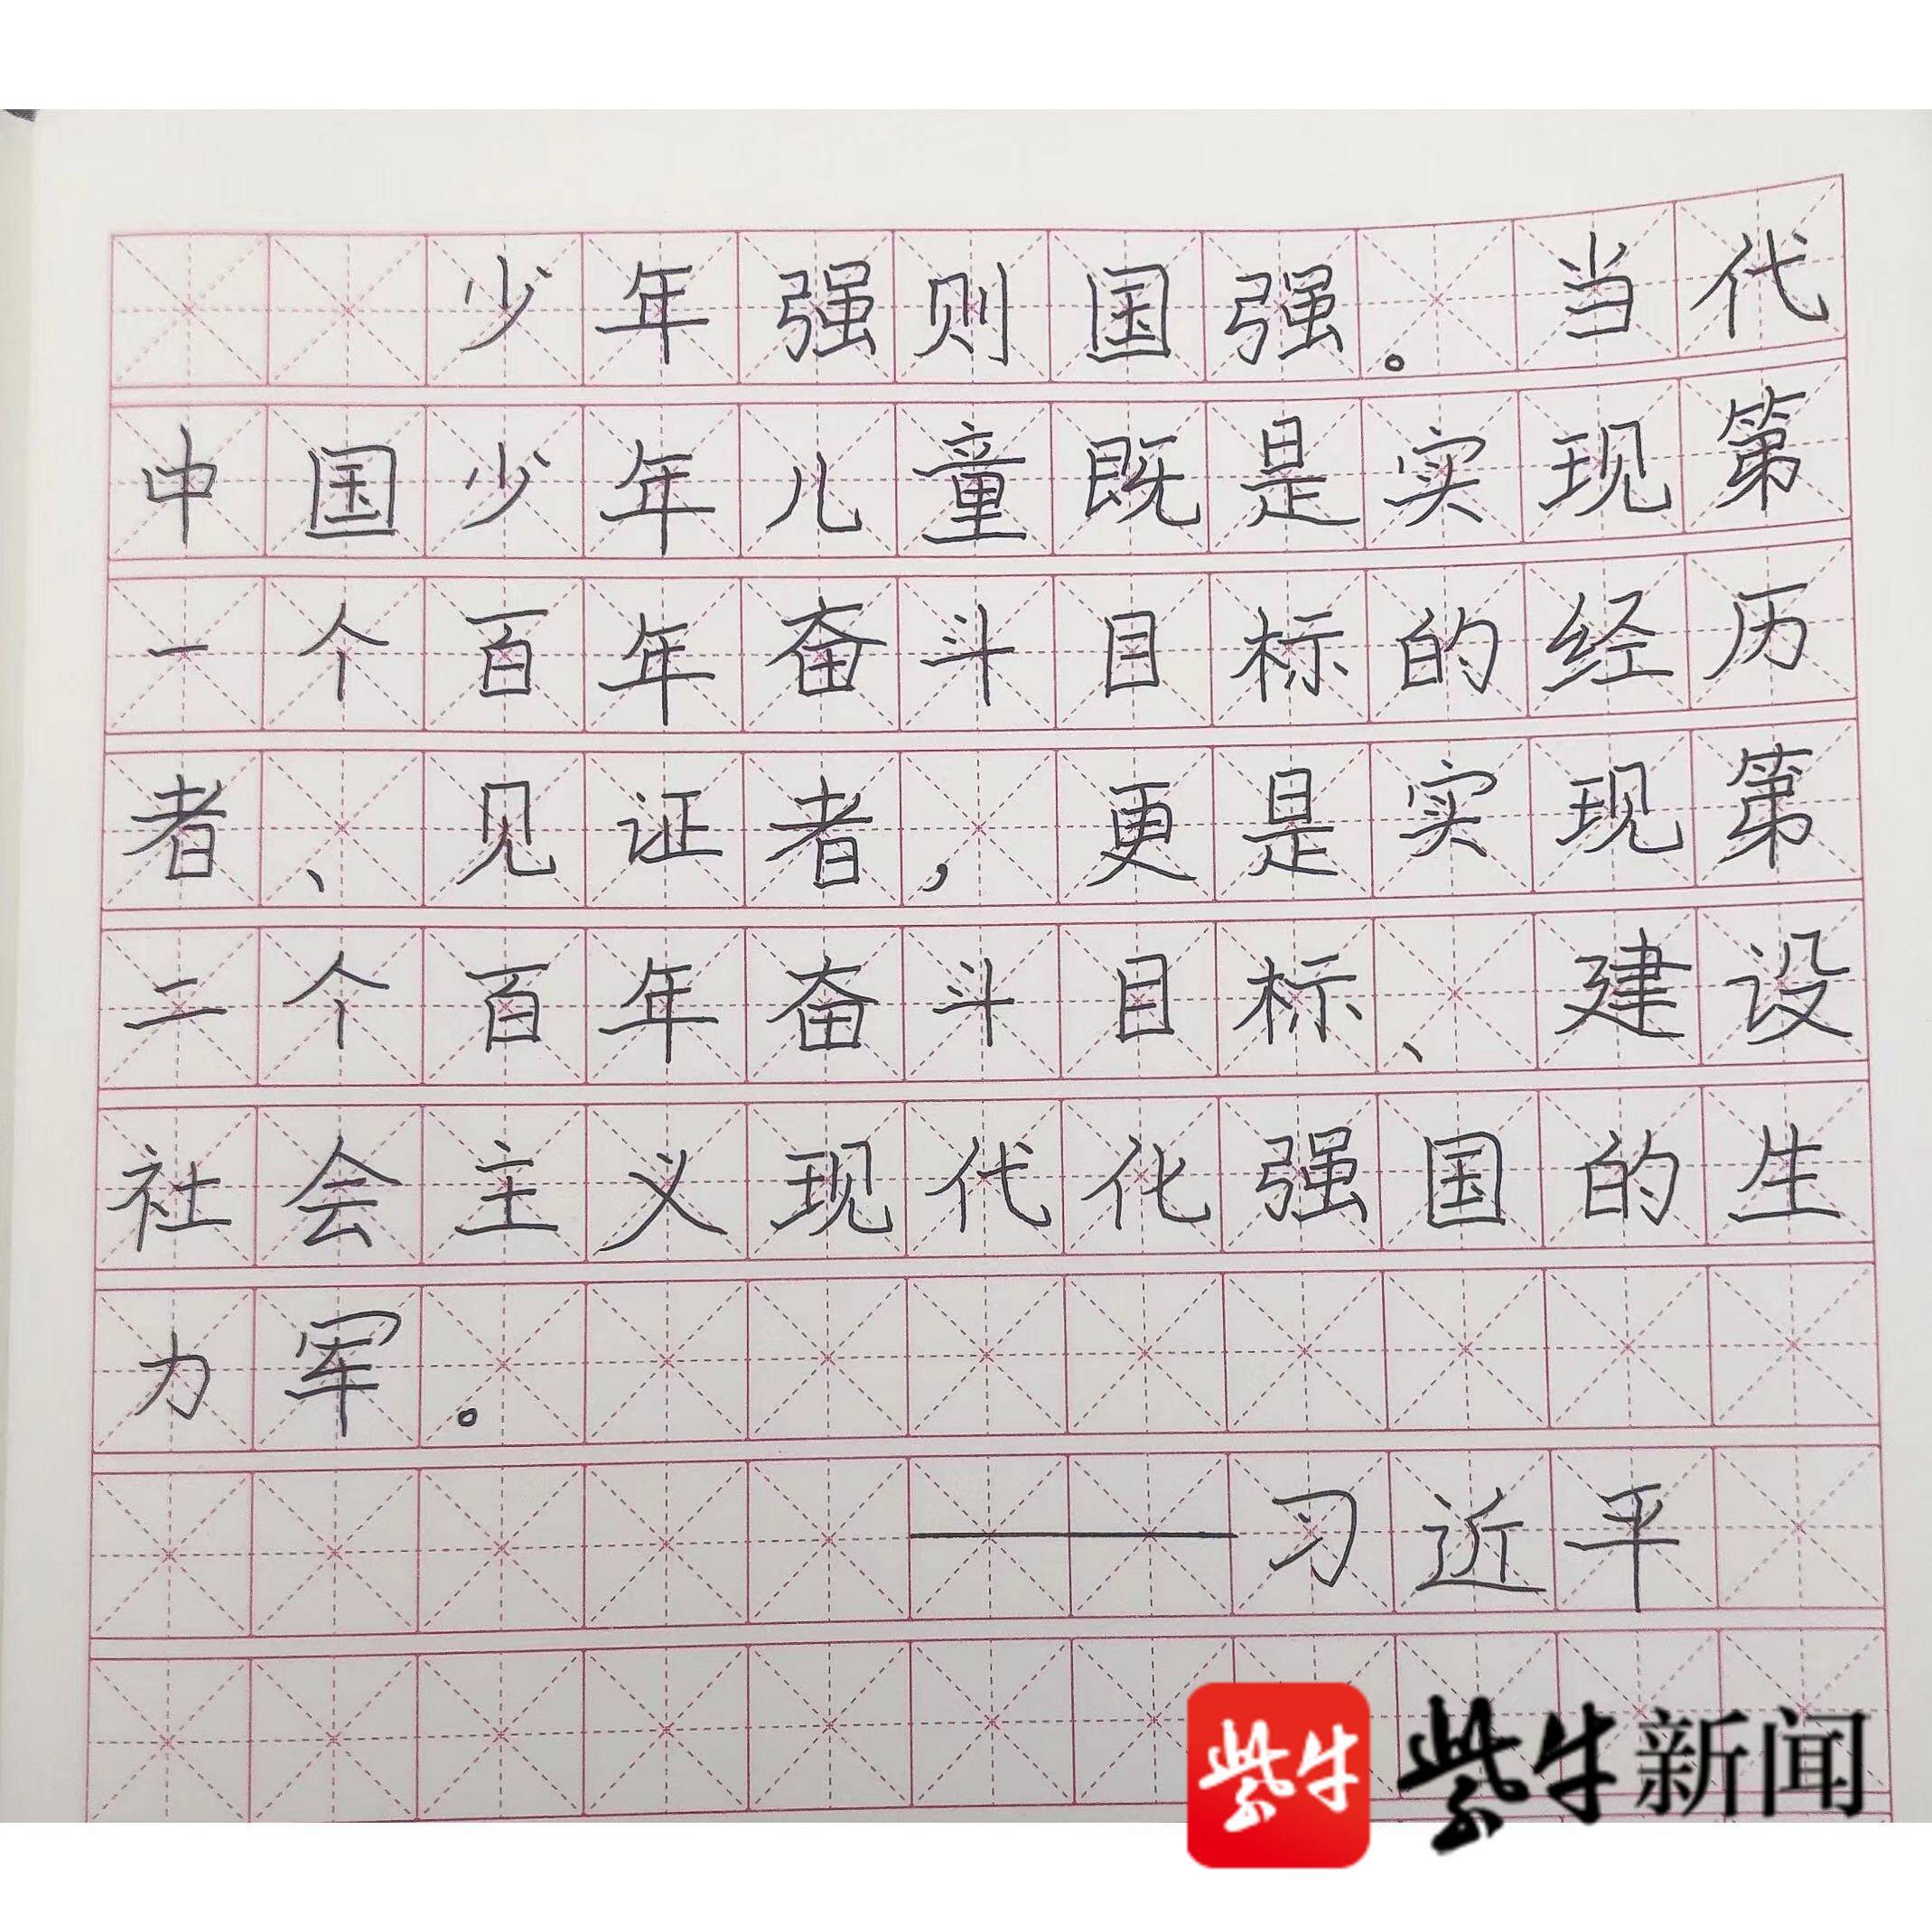 少年强则国强。当代
中国少年儿童既是实现第
一个百年奋斗目标的经历
者、见证者，更是实现第
二个百年奋斗目标、建设
社会主义现代化强国的生
力军。
——习近平
紫牛 紫牛新闻